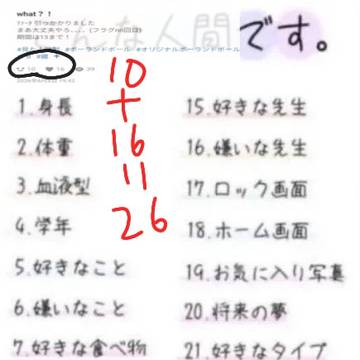 what？！
んな人間です。
#ポーランドボール #オリジナルポーランドボール
10 16
10
+
16
11
26
1.身長
2.体重
3.血液型
4.学年
5.好きなこと
6.嫌いなこと
7.好きな食べ物
15.好きな先生
16.嫌いな先生
17.ロック画面
18.ホーム画面
19.お気に入り写真
20.将来の夢
21.好きなタイプ